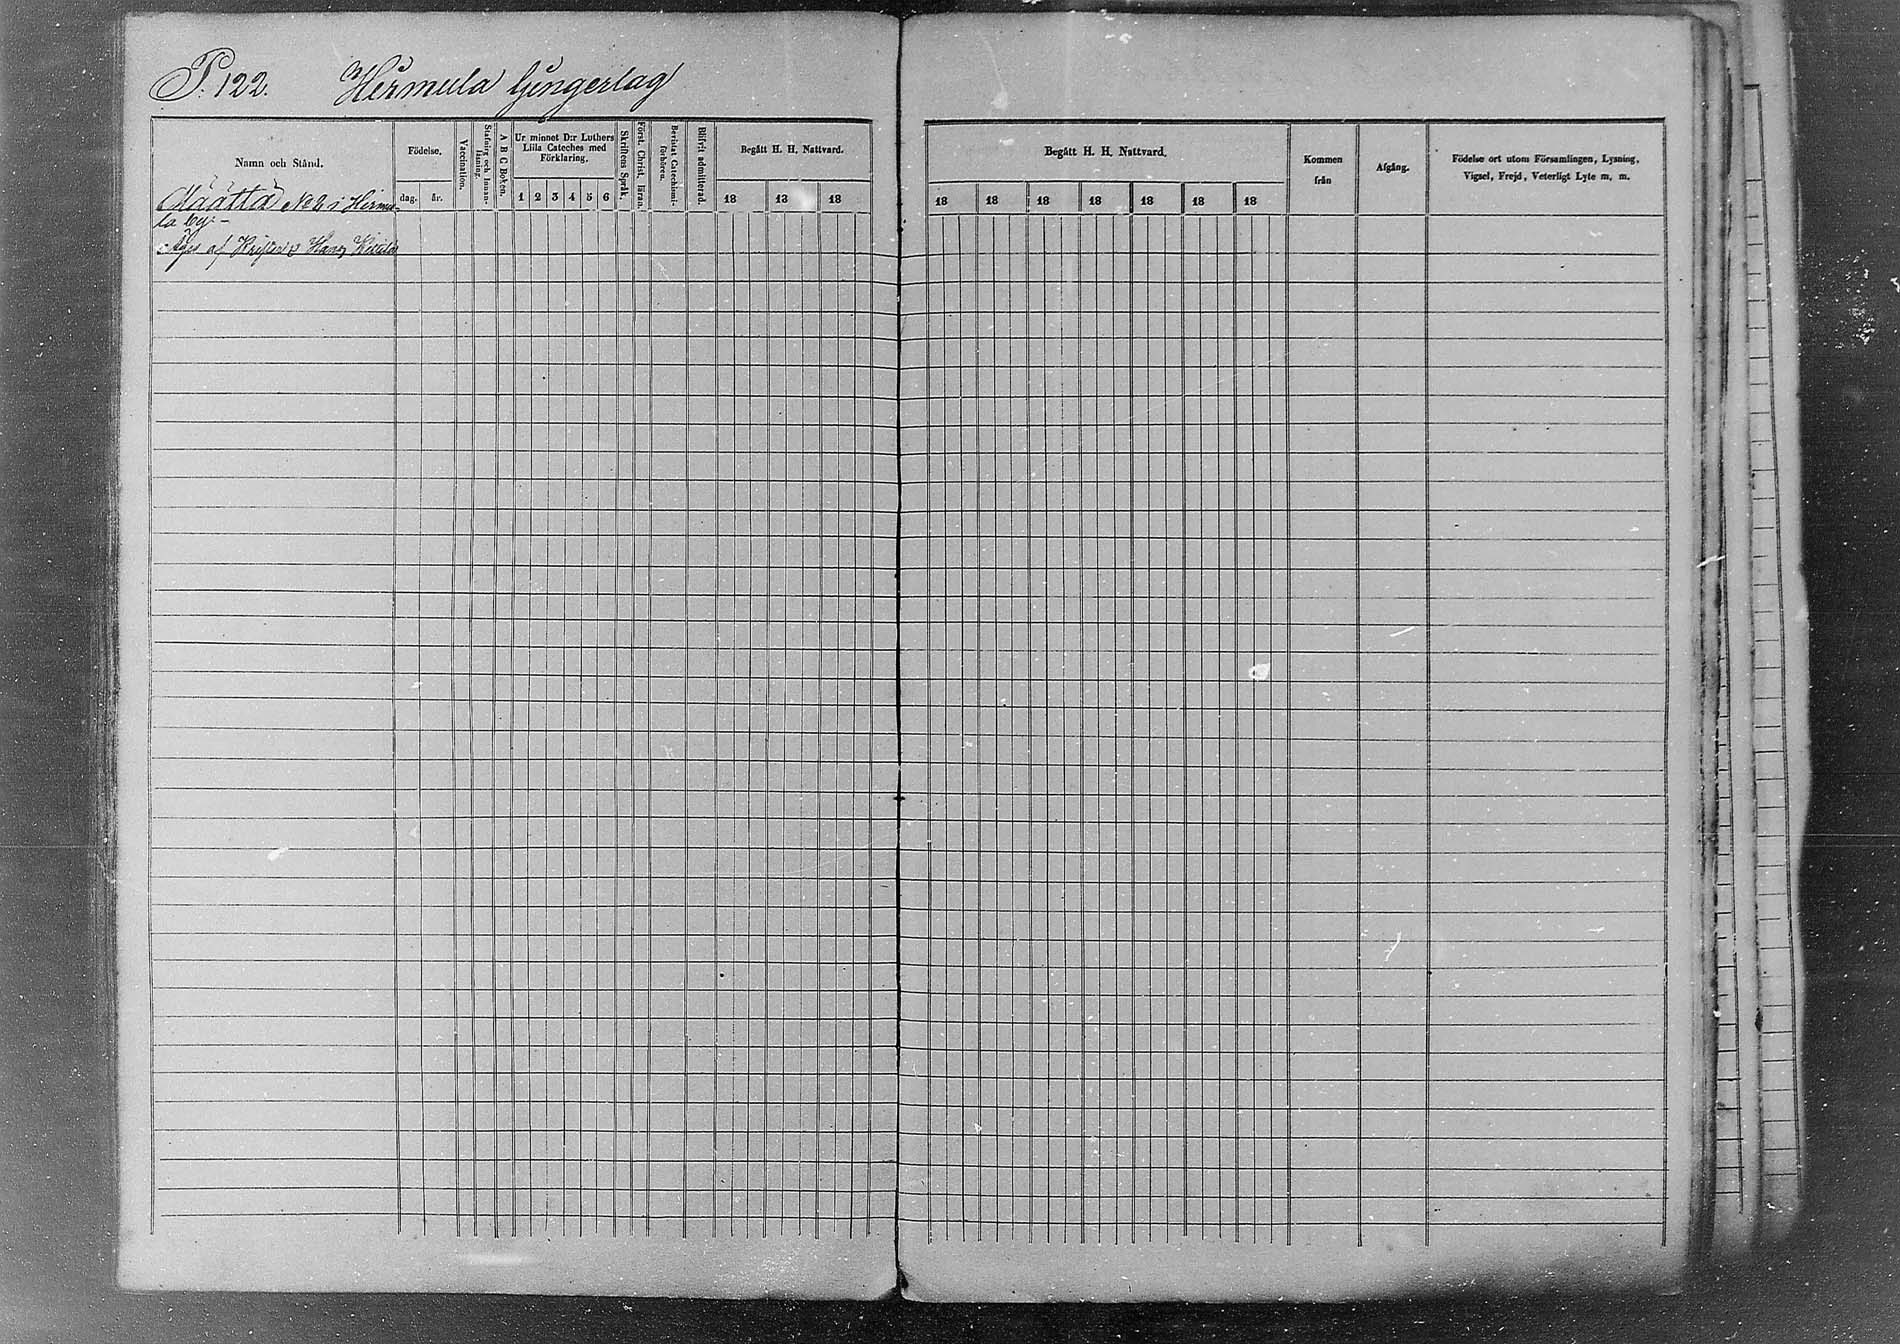 P. 122. Hirmula ljungerlag
Namn och Stånd.
Födelse.
dag. år.
Vaccination.
Stafning och Innan-
läsning.
A B C Boken.
Ur minnet D:r Luthers
Lilla Cateches med
Förklaring.
1 2 3 4 5 6
Skriftens Språk.
Först. Christ. läran.
Bevistat Catechismi-
förhören.
Blifvit admitterad.
Begått H. H. Nattvard.
18 18 18
Määttä No 2 i Hirmu-
la by:-
Äges af Hans
Begått H. H. Nattvard.
18 18 18 18 18 18 18
Kommen
från
Afgång.
Födelse ort utom Församlingen, Lysning,
Vigsel, Frejd, Veterligt Lyte m. m.